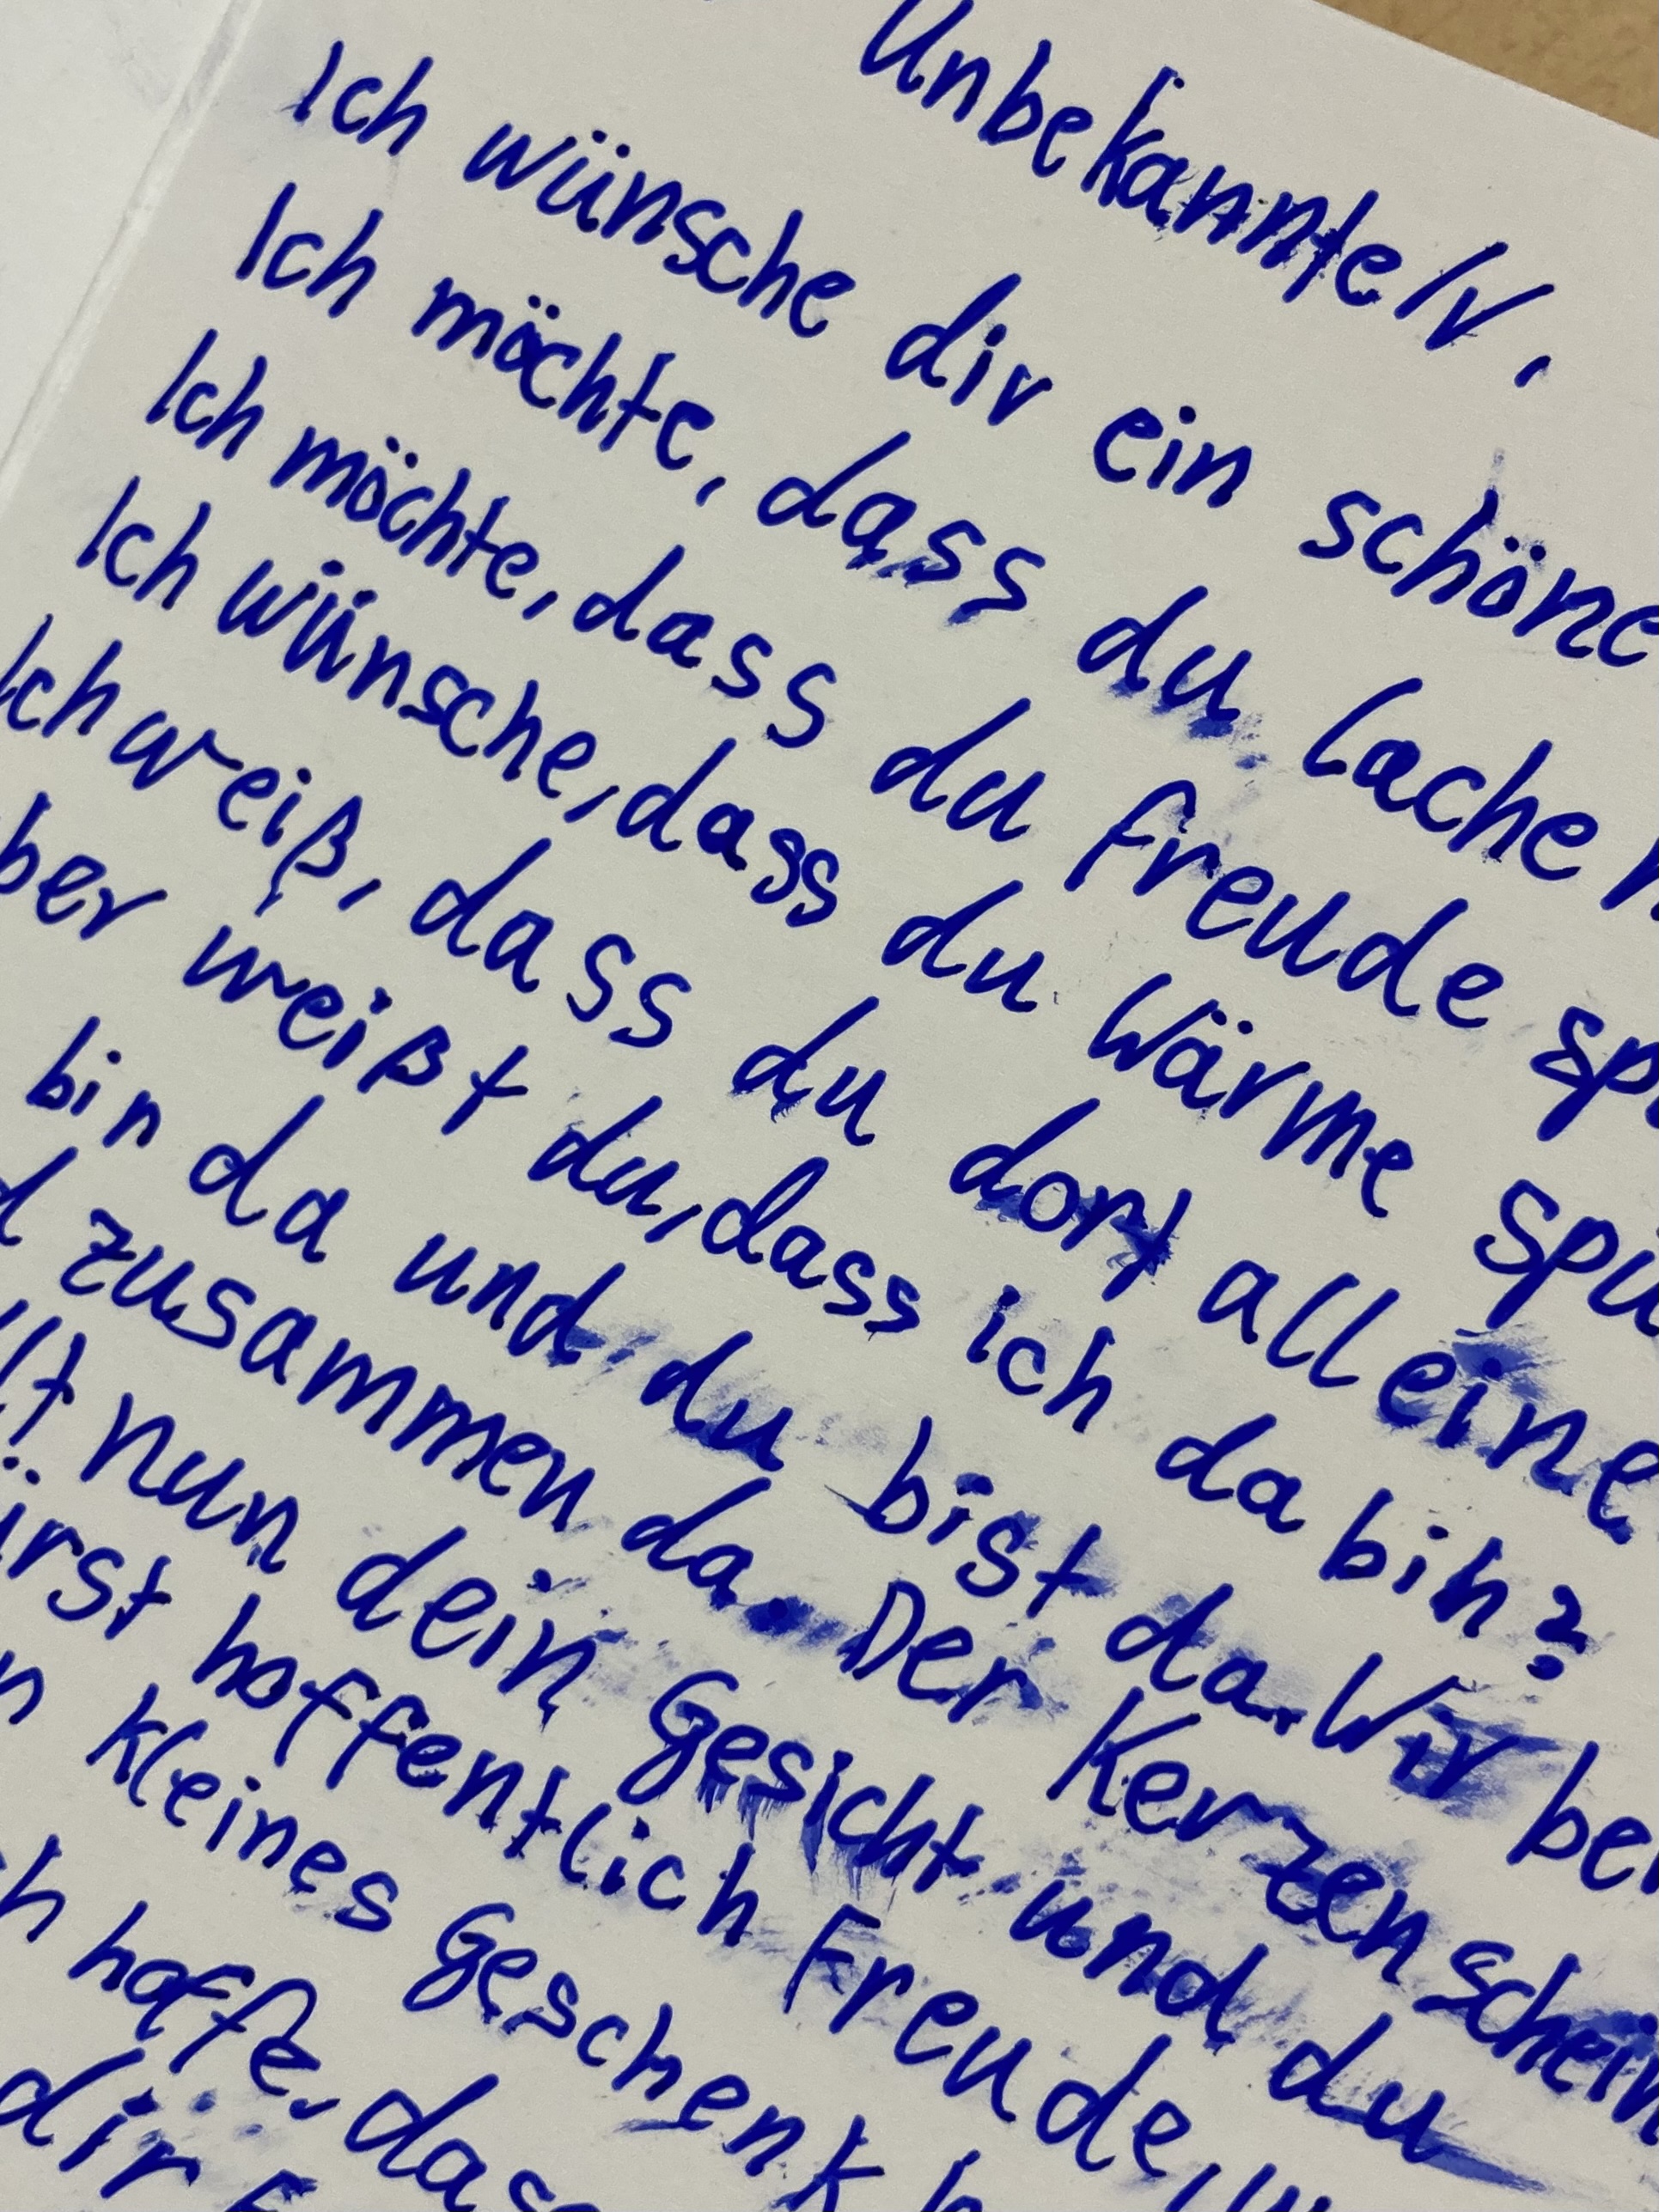 Unbekannte/r,
Ich wünsche dir ein schöne
Ich möchte, dass du lachen
Ich möchte, dass du Freude sp
Ich wünsche, dass du Wärme spü
Ich weiß, dass du dort alleine
ber weißt du, dass ich da bin?
bin da und du bist da. Wir be
d zusammen da. Der Kerzenschein
llt nun dein Gesicht und du
ürst hoffentlich Freude,
n kleines Geschenk
h hoffe, das
dir